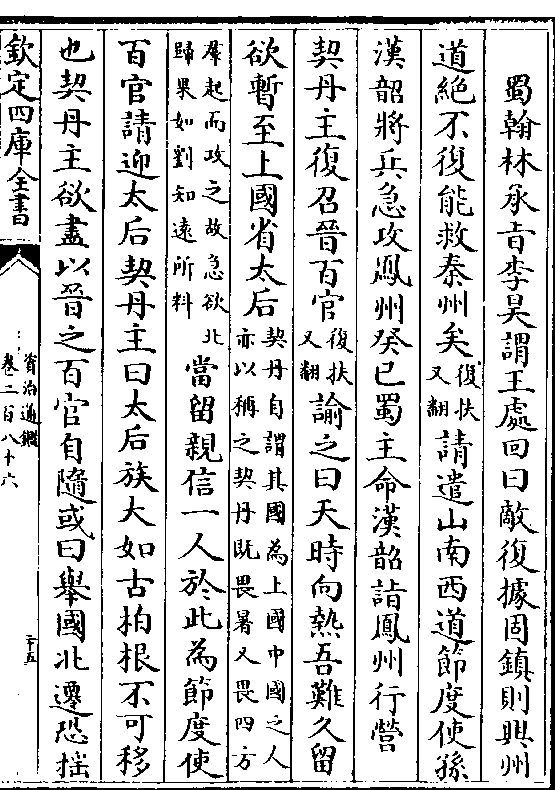 蜀翰林承㫖李昊謂王處回曰敵復據固鎮則興州
道絶不復能救秦州矣復扶又翻請遣山南西道節度使孫
漢韶將兵急攻鳳州癸巳蜀主命漢韶詣鳳州行營
契丹主復召晉百官復扶又翻諭之曰天時向熱吾難久留
欲暫至上國省太后契丹自謂其國為上國中國之人亦以稱之契丹既畏暑又畏四方
羣起而攻之故急欲北歸果如劉知遠所料當留親信一人於此為節度使
百官請迎太后契丹主曰太后族大如古柏根不可移
也契丹主欲盡以晉之百官自隨或曰舉國北遷恐揺
欽定四庫全書
資治通鑑
卷二百八十六
二十五